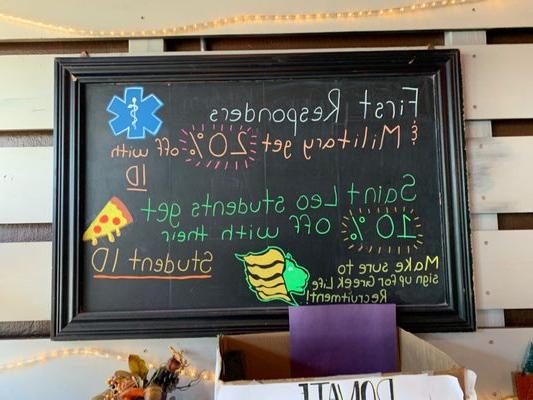 First Responders
& Military get 20% off with
ID
Saint Leo students get
10% off with their
Student ID
Make sure to
sign up for Greek Life
Recruitment!
DONATE